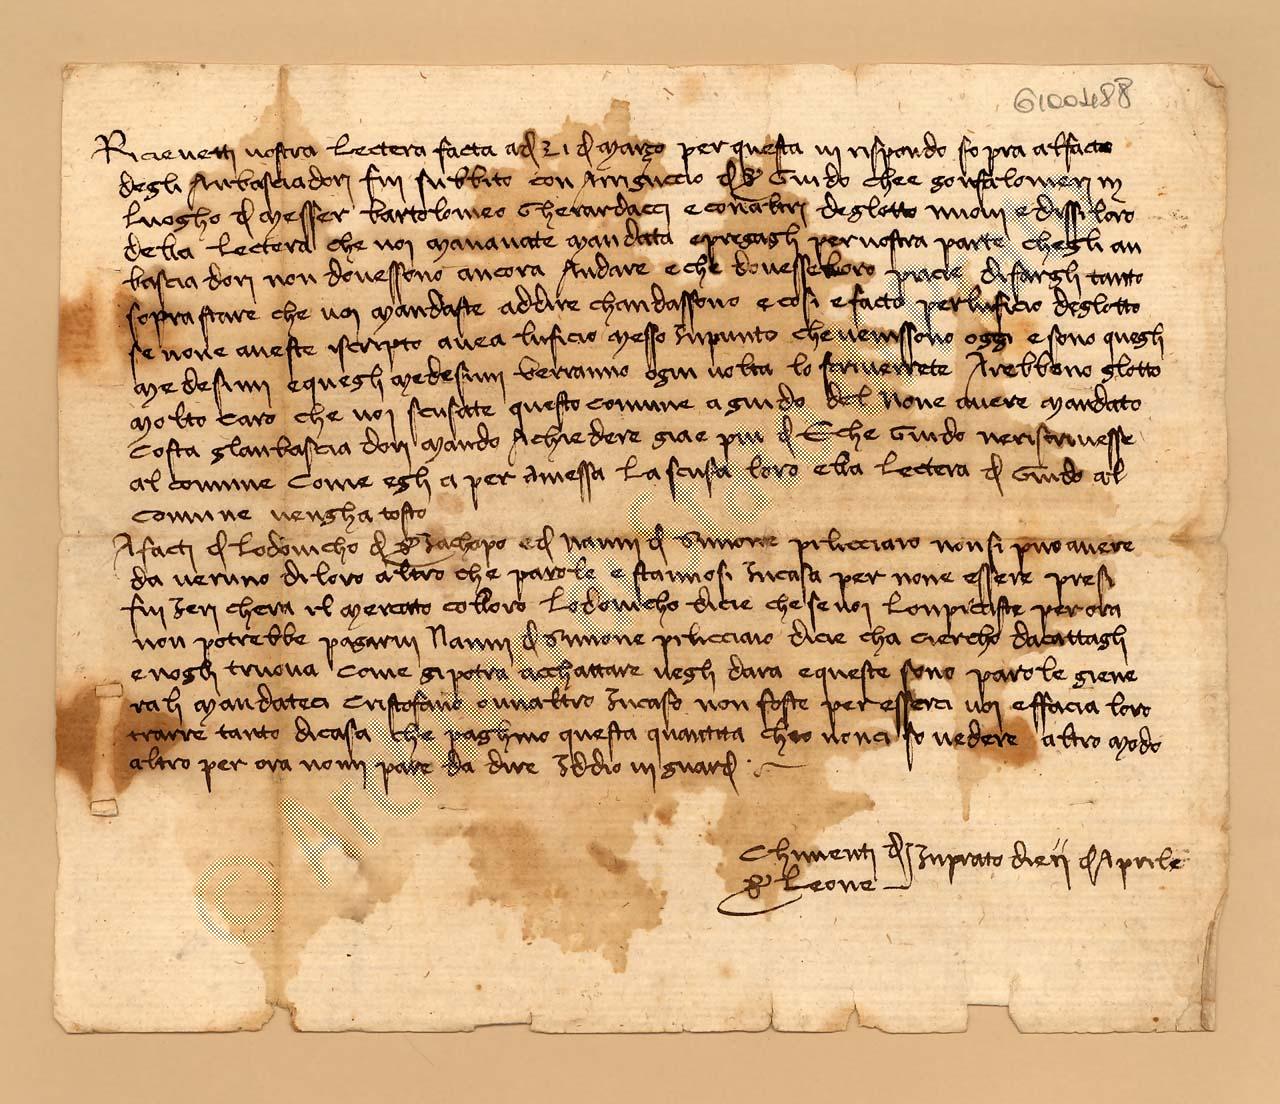 6100488
Ricievetti vostra lectera facta adì 21 di março per questa vi rispondo sopra al facto
degli anbasciadori fui subbito con Arriguccio di ser Guido che e gonfalonieri in
luogho di messer Bartolomeo Gherardacci e con altri degl otto nuovi e dissi loro
della lectera che voi m avavate mandata e pregagli per vostra parte che gli an
basciadori non dovessono ancora andare e che dovesse loro piacie di fargli tanto
soprastare che voi mandaste a ddire ch andassono e così e facto per l uficio degl otto
se none aveste iscripto avea l uficio messo in punto che venissono oggi e sono quegli
medesimi e quegli medesimi verranno ogni volta lo scriverrete arebbono gl otto
molto caro che voi scusate questo comune a Guido del none avere mandato
costa gl anbasciadori mando a chiedere gia e piu dì e che Guido ne riscrivesse
al comune come egli ci per amessa la scusa loro e lla lectera di Guido al
comune vengha tosto
A facti di Lodovicho di ser Jachopo e di Nanni di Simone pilicciaio non si puo avere
da veruno di loro altro che parole e stannosi in casa per none essere presi
fui ieri ch era il mercato co lloro Lodovicho dicie che se voi lo npicaste per ora
non potrebbe pagarvi Nanni di Simone pilicciaio dicie ch a ciercho d acattagli
e no gli truova come gi potra acchattare ve gli dara e queste sono parole giene
rali mandateci Cristofano o un altro in caso non foste per esserci voi e ffacia loro
trarre tanto di casa che paghino questa quantita ch io non ci so vedere altro modo
altro per ora no mi pare da dire Iddio vi guardi
Chimenti di In Prato dì e ii d aprile
ser Leone
© Archivio di Stato